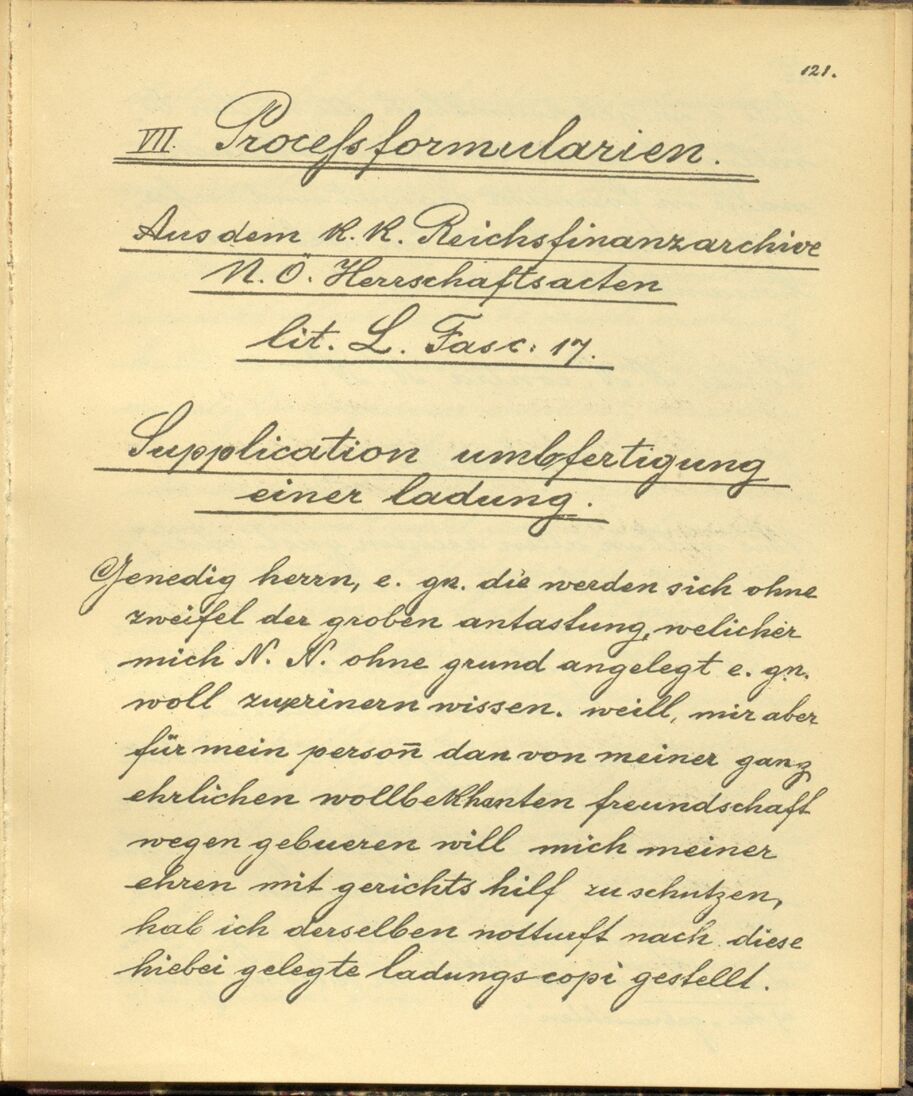 121.
VII. Processformularien.
Aus dem K. K. Reichsfinanzarchive
N. Ö. Herrschaftsacten
lit. L. Fasc. 17.
Supplication umbfertigung
einer ladung.
Genedig herrn, e. gn. die werden sich ohne
zweifel der groben antastung, welicher
mich N. N. ohne grund angelegt e. gn.
woll zuerinern wissen. weill, mir aber
für mein persoñ dan von meiner ganz
ehrlichen wollbekhanten freundschaft
wegen gebueren will mich meiner
ehren mit gerichts hilf zu schutzen,
hab ich derselben notturft nach diese
hiebei gelegte ladungs copi gestellt.